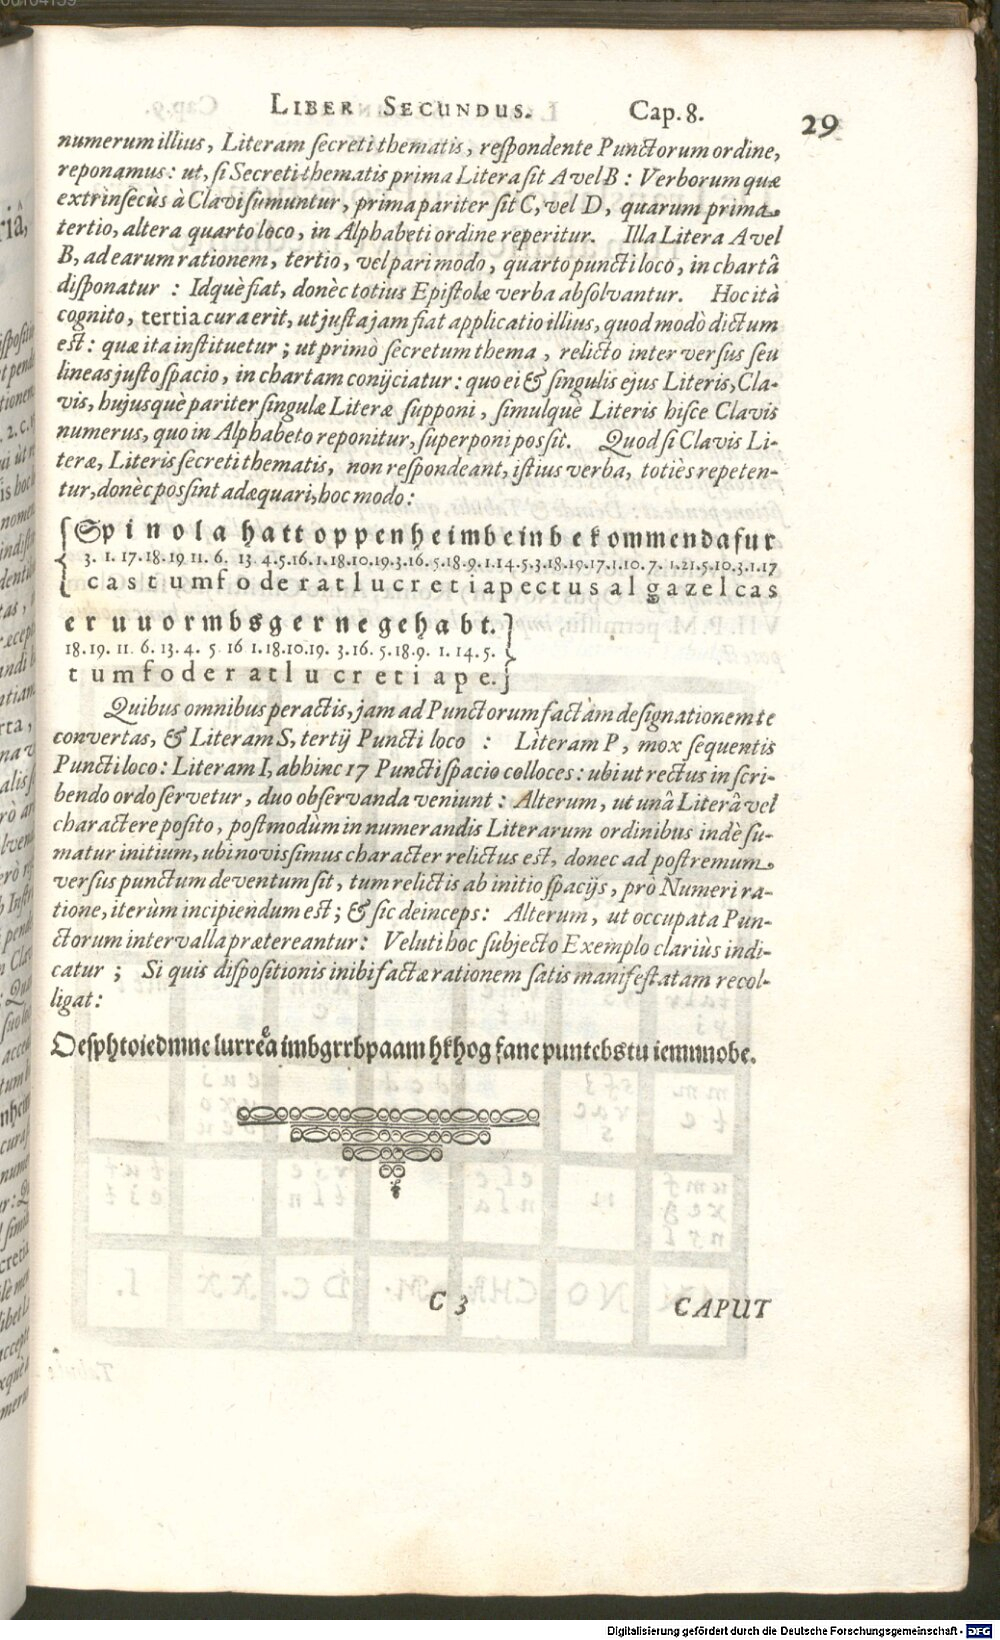 LIBER SECUNDUS. Cap. 8. 29
numerum illius, Literam ſecreti thematis, reſpondente Punctorum ordine,
reponamus: ut, ſi Secreti thematis prima Litera ſit A vel B: Verborum quæ
extrinſecùs à Clavi ſumuntur, prima pariter ſit C, vel D, quarum prima
tertio, altera quarto loco, in Alphabeti ordine reperitur. Illa Litera A vel
B, ad earum rationem, tertio, vel pari modo, quarto puncti loco, in chartâ
diſponatur: Idquè fiat, donèc totius Epiſtolæ verba abſolvantur. Hoc ità
cognito, tertia cura erit, ut juſta jam fiat applicatio illius, quod modò dictum
est: quæ ita inſtituetur; ut primò ſecretum thema, relicto inter verſus ſeu
lineas juſto ſpacio, in chartam conijciatur: quo ei & ſingulis ejus Literis, Cla-
vis, hujusquè pariter ſingulæ Literæ ſupponi, ſimulquè Literis hiſce Clavis
numerus, quo in Alphabeto reponitur, ſuperponi poſsit. Quod ſi Clavis Li-
teræ, Literis ſecreti thematis, non reſpondeant, iſtius verba, totiès repeten-
tur, donèc poſsint adæquari, hoc modo:
Spinola hatt oppenheim bein bekommen daſur
3. 1. 17. 18. 19 11. 6. 13. 4. 5. 16. 1. 18. 10. 19. 3. 16. 5. 18. 9. 1. 14. 5. 3. 18. 19. 17. 1. 10. 7. 1. 21. 5. 10. 3. 1. 17
castumfoderatlucretiapectusalgazelcas
eruuormbsgernegehabt.
18. 19. 11. 6. 13. 4. 5. 16 1. 18. 10. 19. 3. 16. 5. 18. 9. 1. 14. 5.
tumfoderatlucretiape.
Quibus omnibus peractis, jam ad Punctorum factàm deſignationem te
convertas, & Literam S, tertij Puncti loco: Literam P, mox ſequentis
Puncti loco: Literam I, abhinc 17 Puncti ſpacio colloces: ubi ut rectus in ſcri-
bendo ordo ſervetur, duo obſervanda veniunt: Alterum, ut unâ Literâ vel
charactere poſito, poſtmodùm in numerandis Literarum ordinibus indè ſu-
matur initium, ubi noviſsimus character relictus est, donec ad poſtremum
verſus punctum deventum ſit, tum relictis ab initio ſpacijs, prò Numeri ra-
tione, iterùm incipiendum est; & ſic deinceps: Alterum, ut occupata Pun-
ctorum intervalla prætereantur: Veluti hoc ſubjecto Exemplo clariùs indi-
catur; Si quis diſpoſitionis inibi factæ rationem ſatis manifeſtatam recol-
ligat:
Oeſphtoiedmne lurreͤa imbgrrbpaam hkhog fane puntebs tu iemmnobe.
C 3 CAPUT
Digitalisierung gefördert durch die Deutsche Forschungsgemeinschaft - DFG